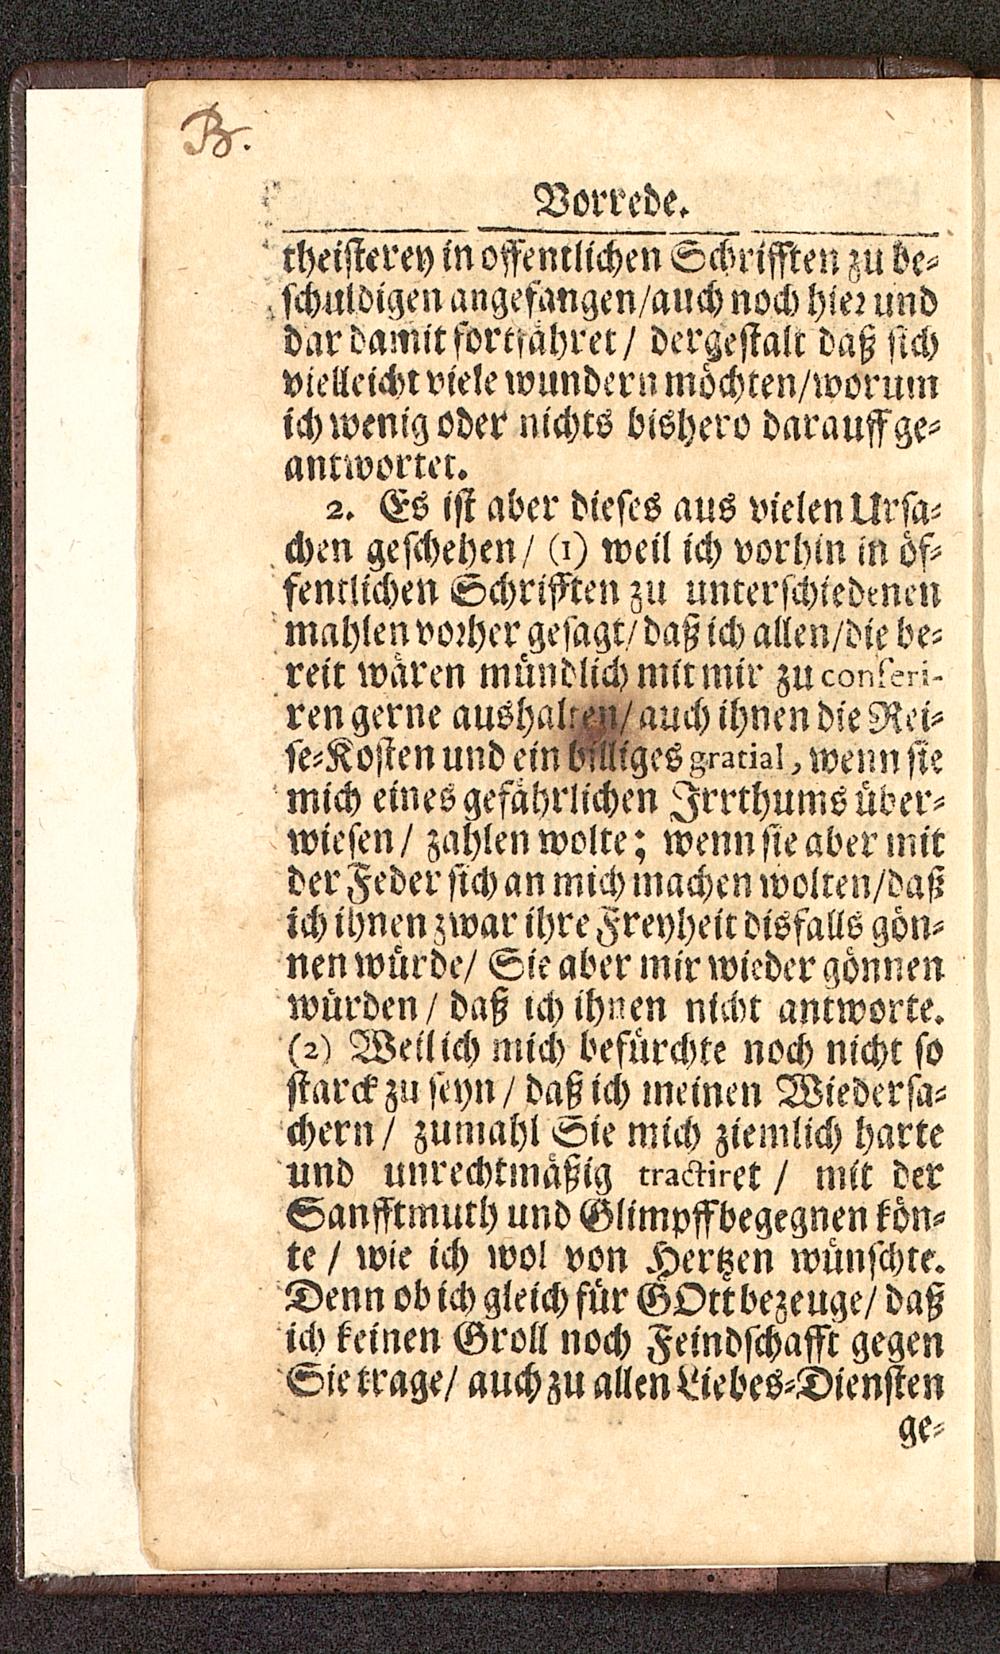 B.
Vorrede.
theisterey in offentlichen Schrifften zu be-
schuldigen angefangen/auch noch hier und
dar damit fortfähret / dergestalt daß sich
vielleicht viele wundern möchten/worum
ich wenig oder nichts bishero darauff ge-
antwortet.
2. Es ist aber dieses aus vielen Ursa-
chen geschehen / (1) weil ich vorhin in öf-
fentlichen Schrifften zu unterschiedenen
mahlen vorher gesagt/ daß ich allen/die be-
reit wären mündlich mit mir zu conferi-
ren gerne aushalten/ auch ihnen die Rei-
se-Kosten und ein billiges gratial, wenn sie
mich eines gefährlichen Irrthums über-
wiesen / zahlen wolte; wenn sie aber mit
der Feder sich an mich machen wolten/daß
ich ihnen zwar ihre Freyheit disfalls gön-
nen würde/ Sie aber mir wieder gönnen
würden / daß ich ihnen nicht antworte.
(2) Weil ich mich befürchte noch nicht so
starck zu seyn / daß ich meinen Wiedersa-
chern / zumahl Sie mich ziemlich harte
und unrechtmäßig tractiret / mit der
Sanfftmuth und Glimpff begegnen kön-
te / wie ich wol von Hertzen wünschte.
Denn ob ich gleich für GOtt bezeuge/ daß
ich keinen Groll noch Feindschafft gegen
Sie trage/ auch zu allen Liebes-Diensten
ge-